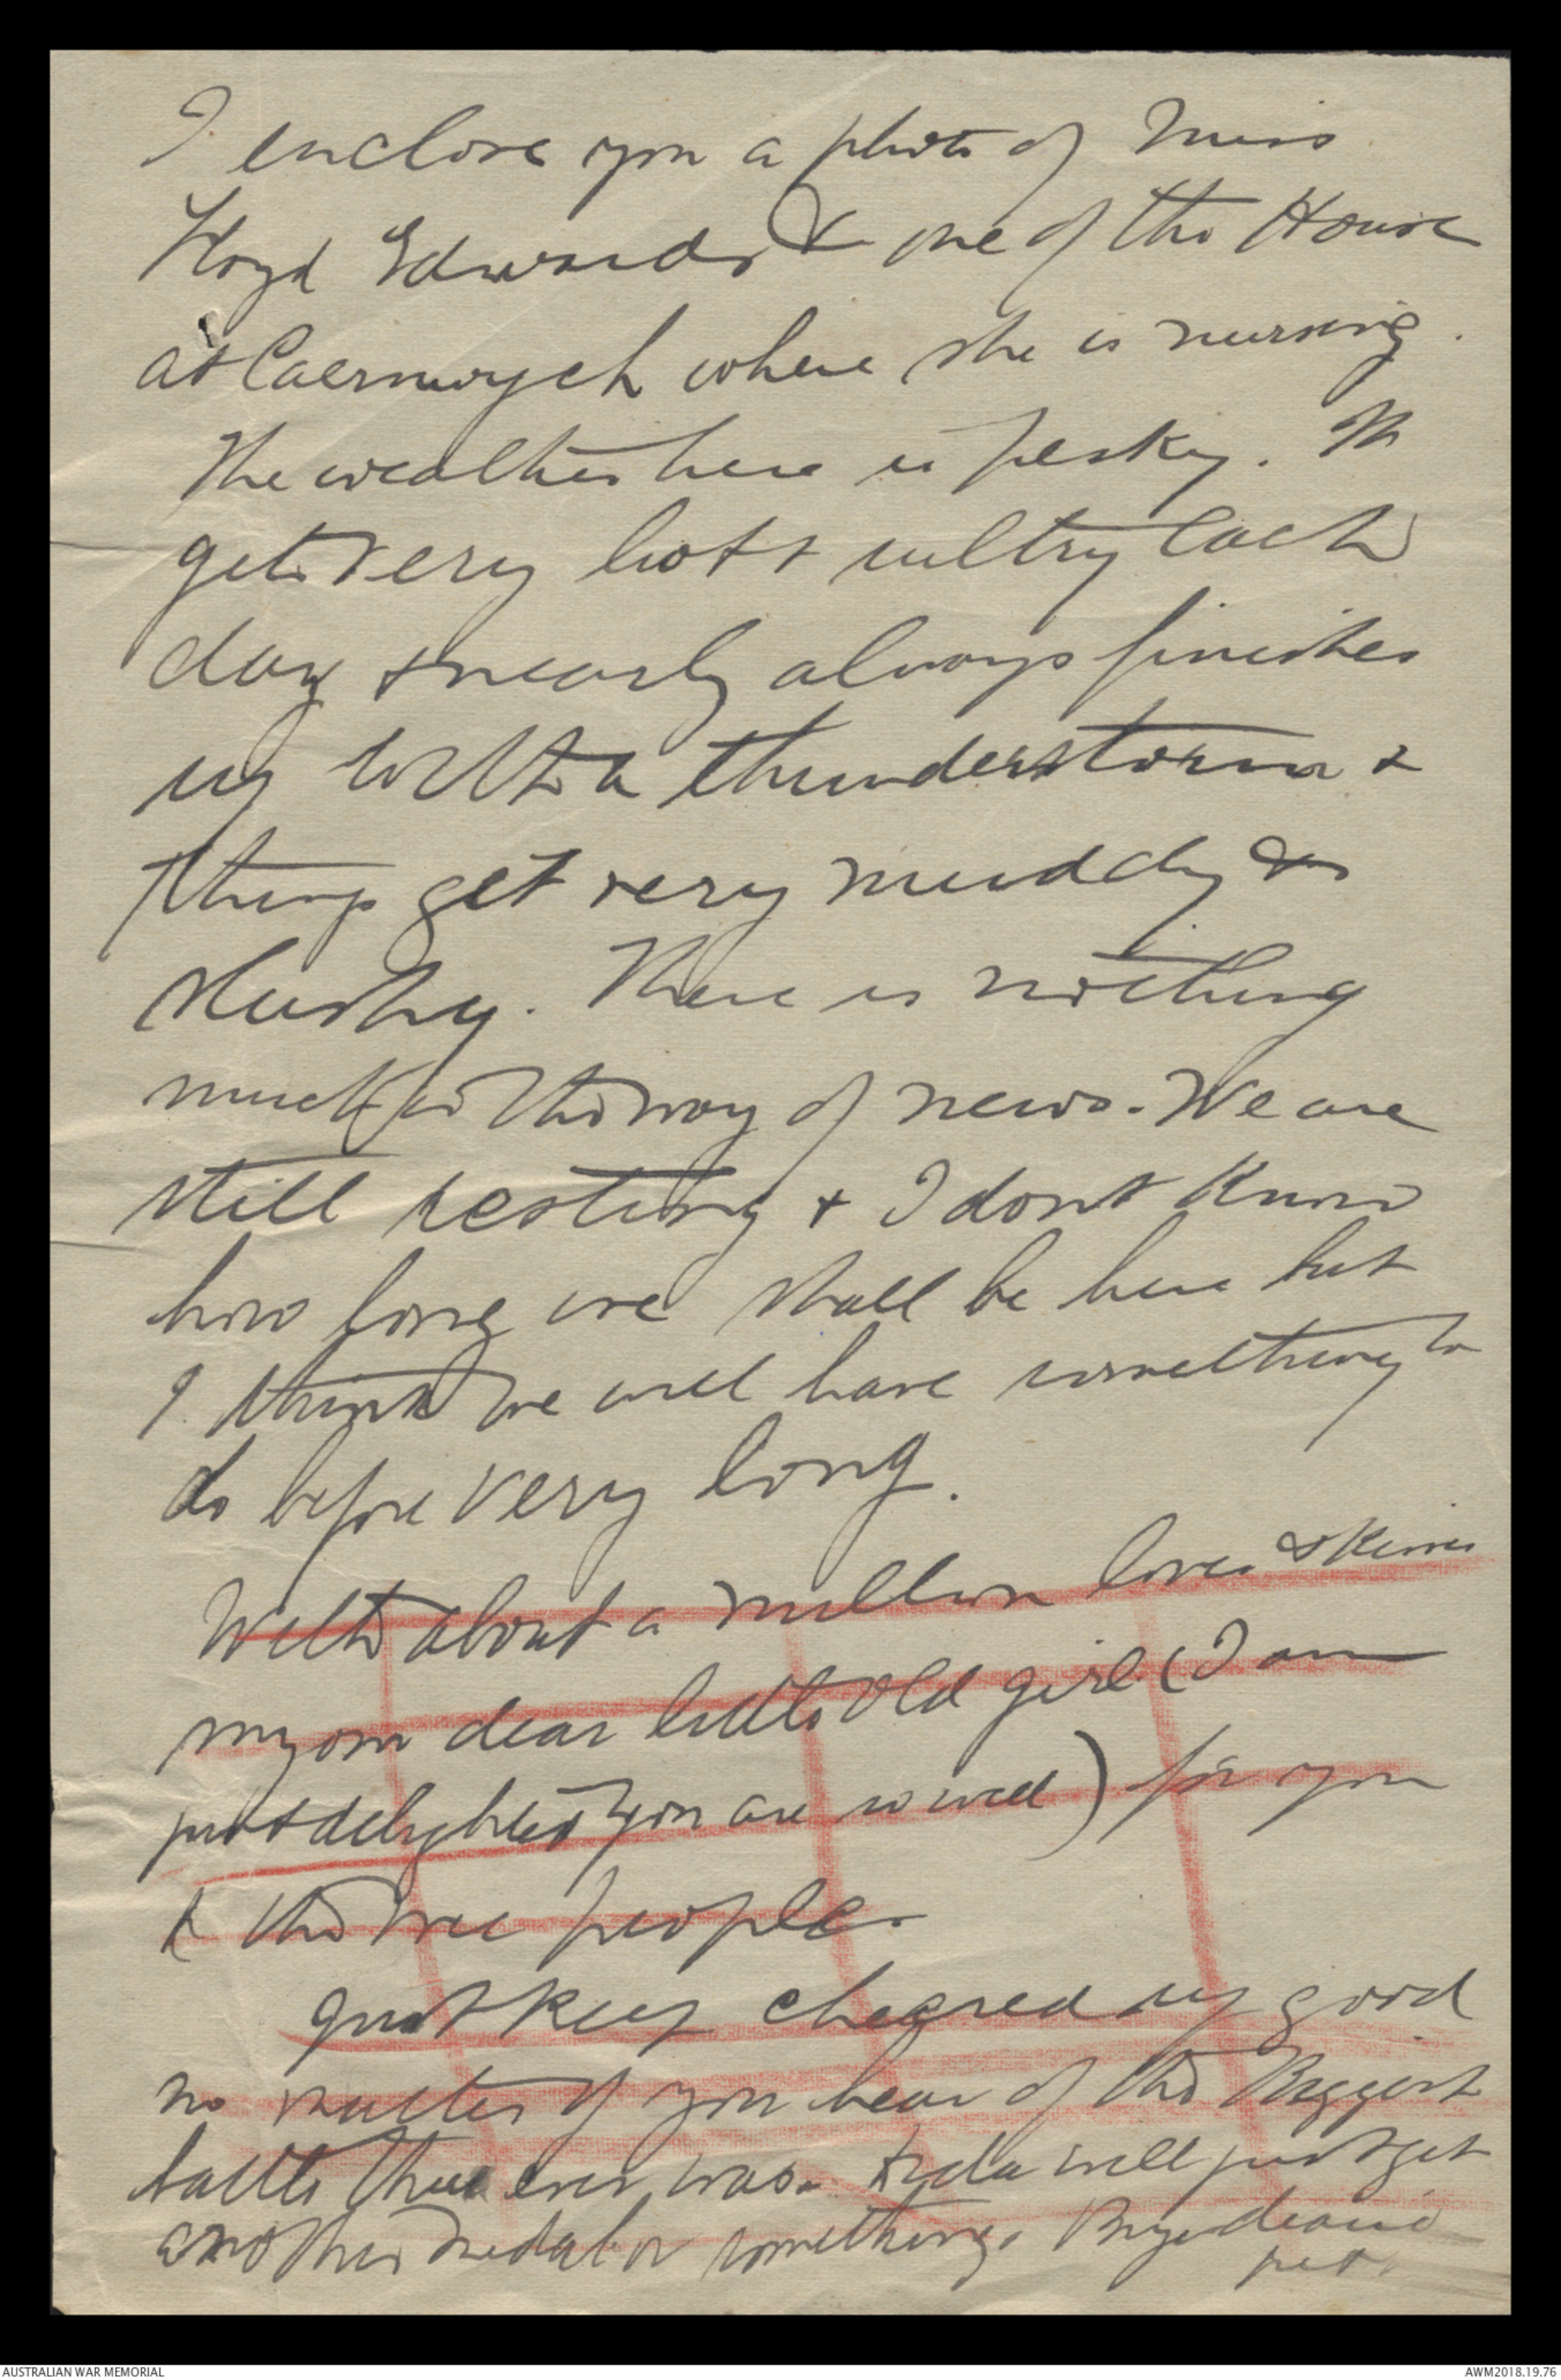 I enclose you a photo of Miss
Floyd Edwards & one of the House
at Caernwych where she is nursing.
The weather here is pesky. It
gets very hot & sultry each
day & nearly always finishes
up with a thunderstorm &
things get very muddy &
slushy. There is nothing
much in the way of news. We are
still resting & I dont know
how long we shall be here but
I think we will have something to
do before very long.
With about a million loves & kisses
my own dear little old girl (I am
just delighted you are so well) for you
& the wee people.
Just keep cheered up good
no matter if you hear of the Biggest
battle there ever was. will just get
another medal or something. Bye dearie
pet.
AUSTRALIAN WAR MEMORIAL
AWM2018.19.76